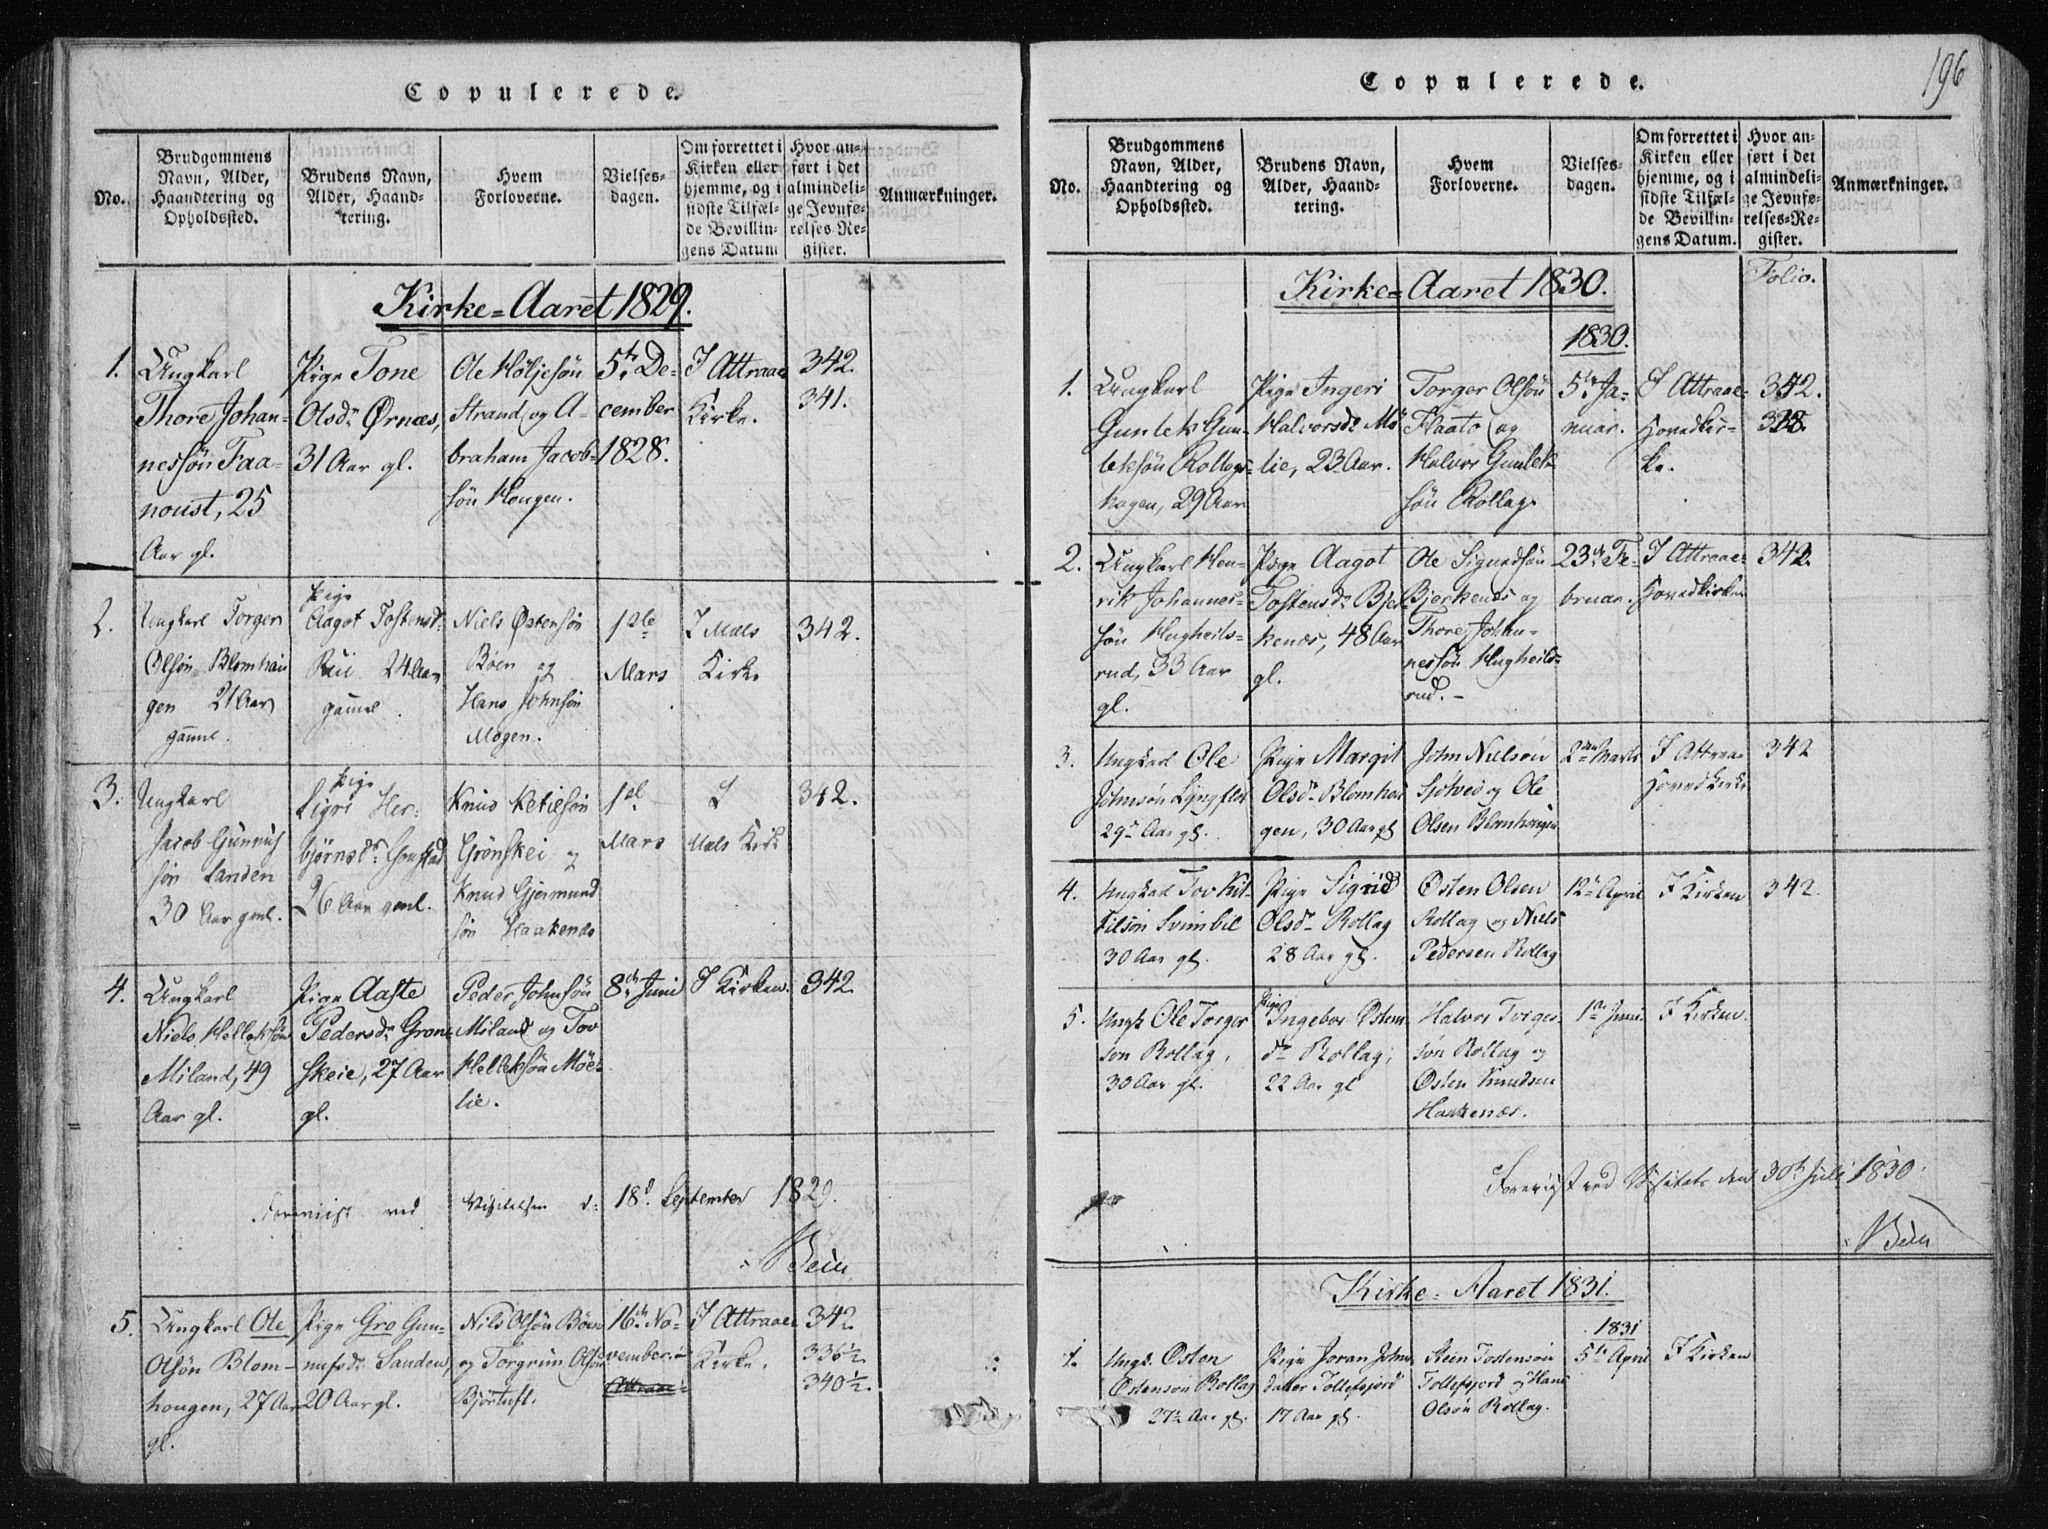 Copulerede.
No.
Brudgommens
Navn, Alder,
Haandtering og
Opholdssted.
Brudens Navn,
Alder, Haand-
tering.
Hvem
Forloverne.
Vielses-
dagen.
Om forrettet i
Kirken eller
hjemme, og i
sidste Tilfæl-
de Bevillin-
gens Datum
Hvor an-
ført i det
almindeli-
ge Jevnfø-
relses-Re-
gister.
Anmærkninger.
Kirke-Aaret 1829.
1.
Ungkarl
Thore Johan-
nessøn Faa-
noust, 25
Aar gl.
Pige Tone
Olsdr Ørnæs,
31 Aar gl.
Ole Høljesøn
Strand og A-
braham Jacob-
søn Hougen.
5te De-
cember
1828.
I Attraae
Kirke.
342.
341.
2.
Ungkarl Torger
Olsøn Blomhau
gen 21 Aar
gaml.
Pige
Aagot Tostensd.
Rui 24 Aar
gamel.
Niels Østensøn
Bøen og
Hans Johnsøn
Mogen.
1ste
Mars
I Mæls
Kirke
342.
3.
Ungkarl
Jacob Gunnuf
søn Sanden
30 Aar gml.
Pige
Sigri Her-
bjørnsdr
26 Aar gml.
Knud Ketilsøn
Grønskei og
Knud Gjermund
søn Haakenæs
1ste
Mars
I
Mæls Kirke
342.
4.
Ungkarl
Niels Helleksøn
Miland, 49
Aar gl.
Pige Aaste
Pedersdr Grøn-
skeie, 27 Aar
gl.
Peder Johnsøn
Miland og Tov
Helleksøn Møe-
lie.
8de Juni
I Kirken.
342.
Foreviist ved Visitatsen d. 18de September 1829.
Bein
5.
Ungkarl Ole
Olsøn Blom-
hougen, 27 Aar
gl.
Pige Gro Gun-
nufsdr Sanden,
20 Aar gl.
Nils Olsøn Bøen
og Torgrim Olsøn
Bjørtuft.
16de No-
vember i
Attraae
I Attraae
Kirke.
342.
336½.
340½.
196
Copulerede.
No.
Brudgommens
Navn, Alder,
Haandtering og
Opholdssted.
Brudens Navn,
Alder, Haand-
tering.
Hvem
Forloverne.
Vielses-
dagen.
Om forrettet i
Kirken eller
hjemme, og i
sidste Tilfæl-
de Bevillin-
gens Datum.
Hvor an-
ført i det
almindeli-
ge Jevnfø-
relses-Re-
gister.
Anmærkninger.
Folio.
Kirke-Aaret 1830.
1830.
1.
Ungkarl
Gunlek Gun-
leksøn Rollags-
hagen, 29 Aar
Pige Ingeri
Halvorsdr Mö
lie, 23 Aar.
Torger Olsøn
Flaato og
Halvor Gunlek
søn Rollag
5te Ja-
nuar.
I Attraae-
Hovedkir-
ke.
342.
2.
Ungkarl Hen-
rik Johannes-
søn Hugheils-
rud, 33 Aar
gl.
Pige Aagot
Tostensdr Bjer
kenæs, 48 Aar
gl.
Ole Sigurdsøn
Bjerkenæs og
Thore Johan-
nessøn Hugheils-
rud. -
23de Fe-
bruar.
I Attraae-
Hovedkirke
342.
3.
Ungkarl Ole
Johnsøn Lyngflot
29 Aar gl.
Pige Margit
Olsdr Blomhou
gen, 30 Aar gl
John Nielsøn
Sjotved og Ole
Olsen Blomhougen
2den Marts
I Attraae
Hovedkirke
342
4.
Ungkarl Tov Kit-
tilsøn Svimbil
30 Aar gl.
Pige Sigrid
Olsdr Rollag
28 Aar gl.
Østen Olsen
Rollag og Niels
Pedersen Rollag
12te April
I Kirken
342.
5.
Ungk Ole Torger
søn Rollag.
30 Aar gl.
Pige Ingebor Østen-
dr Rollag,
22 Aar gl
Halvor Torger-
søn Rollag og
Østen Knudsen
Haakenæs.
1te Juni.
I Kirken.
Foreviist ved Visitats den 30te Juli 1830.
Bein
Kirke-Aaret 1831.
1831
1.
Ungk. Østen
Østensøn Rollag
27 Aar gl.
Pige Joran Johns
datter Tollefsjord
17 Aar gl.
Stein Tostensøn
Tollefsjord og Hans
Olsøn Rollag.
5te April
I Kirken